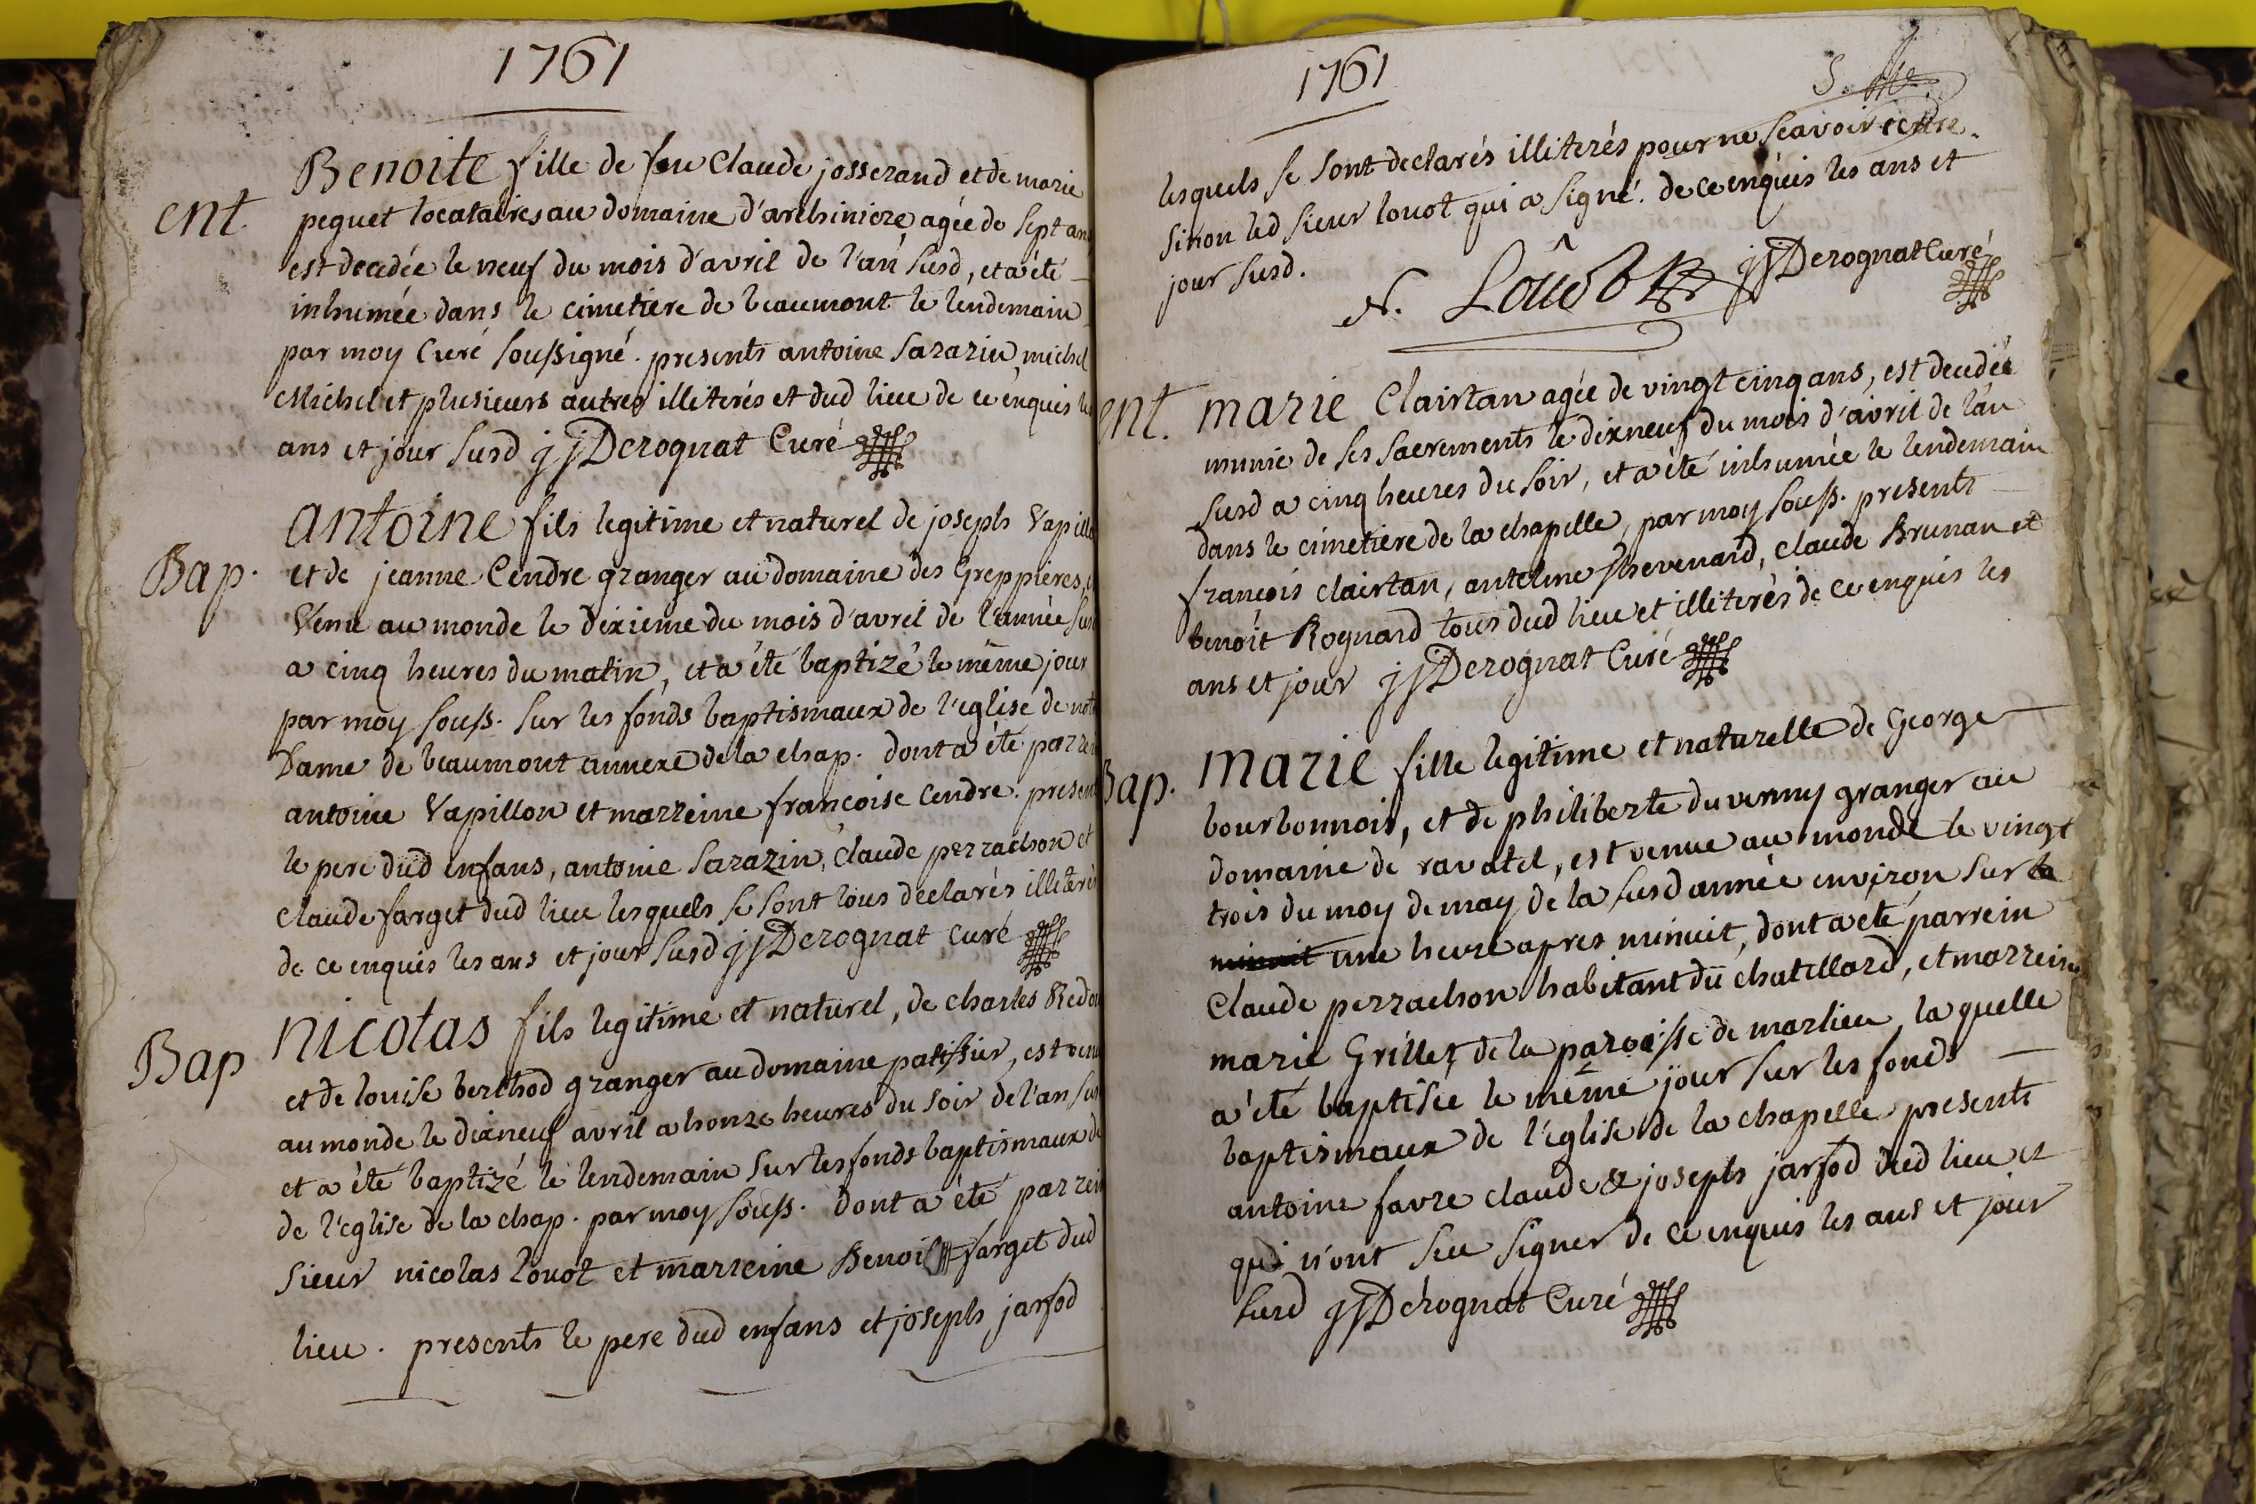 1761
Benoite fille de feu Claude josserand et de marie
ent. peguet locataires au domaine d'arthiniere agée de sept ans
est decedée le neuf du mois d'avril de l'an susd, et a été
inhumée dans le cimetiere de beaumont le lendemain
par moy Curé soussigné. presents antoine Sarazin, michel
Michel et plusieurs autres illiterés et dud lieu de ce enquis les
ans et jour susd jjDerognat Curé
antoine fils legitime et naturel de joseph Vapillon
Bap. et de jeanne Cendre granger au domaine des Greppieres,
Venu au monde le dixieme du mois d'avril de l'année susd
a cinq heures du matin, et a été baptizé le même jour
par moy souss. sur les fonds baptismaux de l'eglise de notre
Dame de beaumont annexe de la chap. dont a été parrein
antoine Vapillon et marreine francoise Cendre. presents
le pere dud enfans, antoine Sarazin, Claude perrachon et
Claude farget dud lieu lesquels se sont tous declarés illiterés
de ce enquis les ans et jour susd jjDerognat curé
nicolas fils legitime et naturel, de charles Redon
Bap et de louise berthod granger au domaine patissier, est venu
au monde le dixneuf avril a honze heures du soir de l'an susd
et a été baptizé le lendemain sur les fonds baptismaux de
de l'eglise de la chap. par moy souss. dont a été parrein
sieur nicolas louot et marreine Benoit farget dud
lieu. presents le pere dud enfans et joseph jarfod
1761
lesquels se sont declarés illiterés pour ne scavoir ecrire.
sinon led sieur louot qui a signé. de ce enquis les ans et
jour susd.
N. Louot jjDerognat Curé
ent. marie Clairtan agée de vingt cinq ans, est decedée
munie de ses sacrements le dixneuf du mois d'avril de l'an
susd a cinq heures du soir, et a été inhumée le lendemain
dans le cimetiere de la chapelle, par moy souss. presents
françois clairtan, antelme thevenard, claude Brunan et
benoit Rognard tous dud lieu et illiterés de ce enquis les
ans et jour jjDerognat Curé
Bap. marie fille legitime et naturelle de George
bourbonnois, et de philiberte duverny granger au
domaine de ravatel, est venue au monde le vingt
trois du moy de may de la susd année environ sur la
minuit une heure apres minuit, dont a été parrein
Claude perrachon habitant du chatellard, et marreine
marie Grillet de la paroisse de marlieu, la quelle
a été baptisée le même jour sur les fonds
baptismaux de l'eglise de la chapelle presents
antoine favre claude & joseph jarfod dud lieu et
qui n'ont seu signer de ce enquis les ans et jour
susd jjDerognat Curé